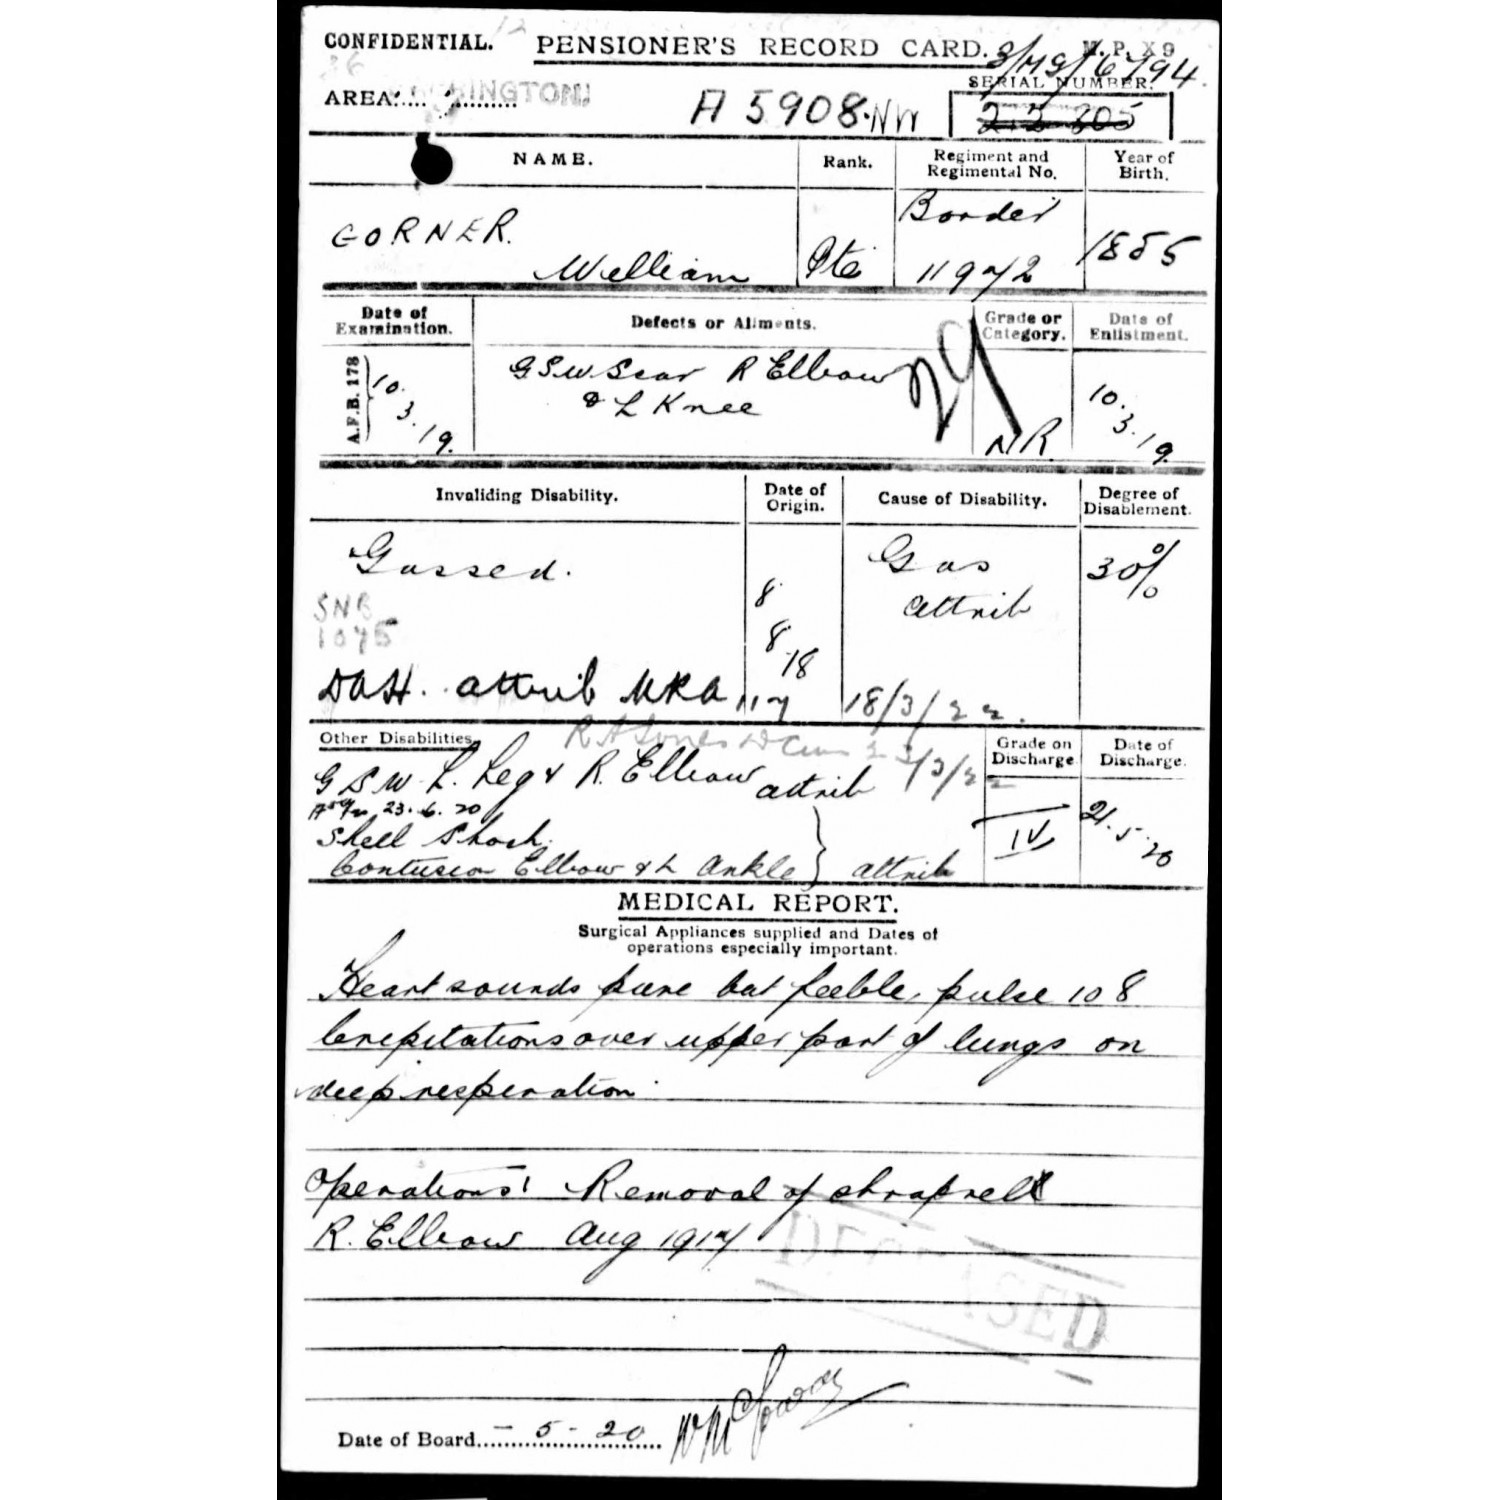 CONFIDENTIAL. PENSIONER'S RECORD CARD. M.P. X 9
SERIAL NUMBER.
AREA A 5908.NW
NAME. Rank. Regiment and Regimental No. Year of Birth.
CORNER. Border
William Pte 11972 1885
Date of Examination. Defects or Ailments. Grade or Category. Date of Enlistment.
A.F.B. 178 10.3.19. G.S.W. Scar R Elbow 10.3.19.
& L Knee
29
NR
Invaliding Disability. Date of Origin. Cause of Disability. Degree of Disablement.
Gassed. 8 8 18 Gas 30%
attrib
SNB
1075
DAH. attrib MRA 117 18/3/22.
Other Disabilities Grade on Discharge Date of Discharge.
23/3/22
G S W L. Leg & R. Elbow attrib
23.6.20
Shell Shock.
IV 21.5.20
Contusion Elbow & L Ankle } attrib
MEDICAL REPORT.
Surgical Appliances supplied and Dates of
operations especially important.
Heart sounds pure but feeble, pulse 108
Crepitations over upper part of lungs on
deep resperation.
Operations: Removal of shrapnell
R. Elbow Aug 1917
DECEASED
Date of Board - 5 - 20